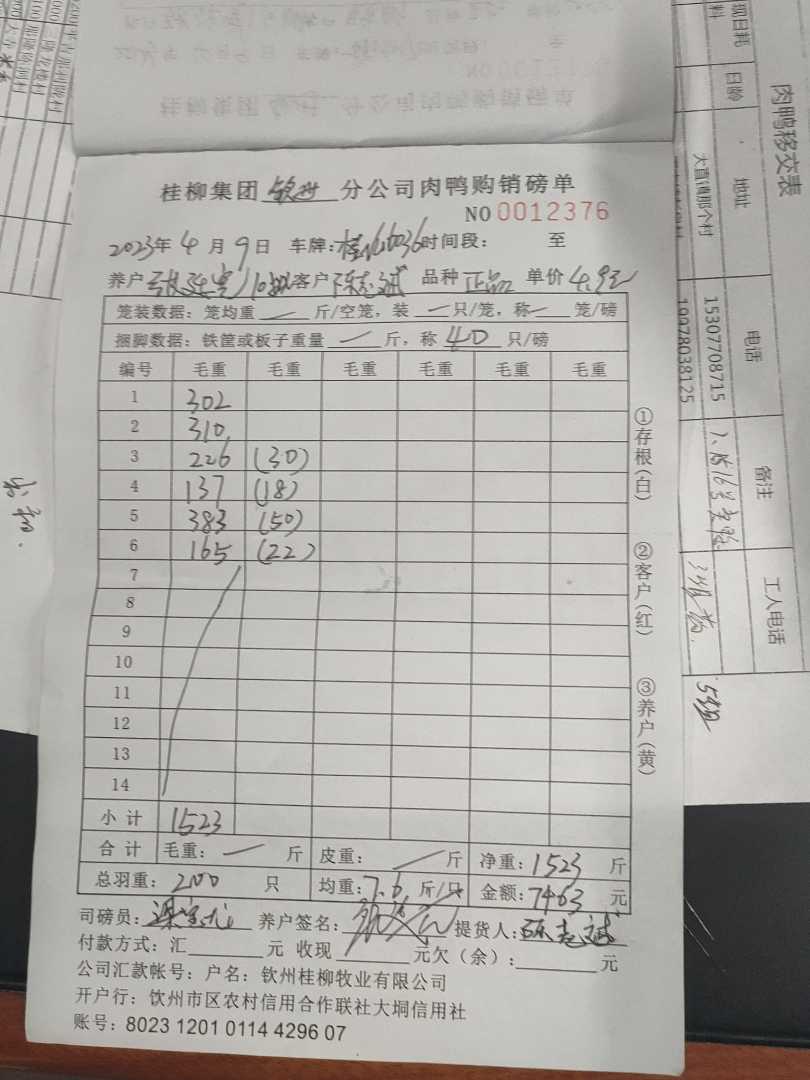 桂柳集团 钦州 分公司肉鸭购销磅单
NO 0012376
2023年 4 月 9 日 车牌: 时间段: 至
养户 客户 陈志斌 品种 正品 单价 4.9元
笼装数据: 笼均重 一 斤/空笼, 装 一 只/笼, 称 一 笼/磅
捆脚数据: 铁筐或板子重量 一 斤, 称 40 只/磅
编号 毛重 毛重 毛重 毛重 毛重 毛重
1 302
2 310
3 226 (30)
4 137 (18)
5 383 (50)
6 165 (22)
7
8
9
10
11
12
13
14
小计 1523
合计 毛重: 一 斤 皮重: 一 斤 净重: 1523 斤
总羽重: 200 只 均重: 7.6 斤/只 金额: 7463 元
司磅员: 养户签名: 提货人: 陈志斌
付款方式: 汇 元 收现 元欠(余): 元
公司汇款帐号: 户名: 钦州桂柳牧业有限公司
开户行: 钦州市区农村信用合作联社大垌信用社
账号: 8023 1201 0114 4296 07
①存根(白)
②客户(红)
③养户(黄)
肉鸭移交表
日龄 地址 电话 备注 工人电话
大直镇那个村 15307708715
19978038125